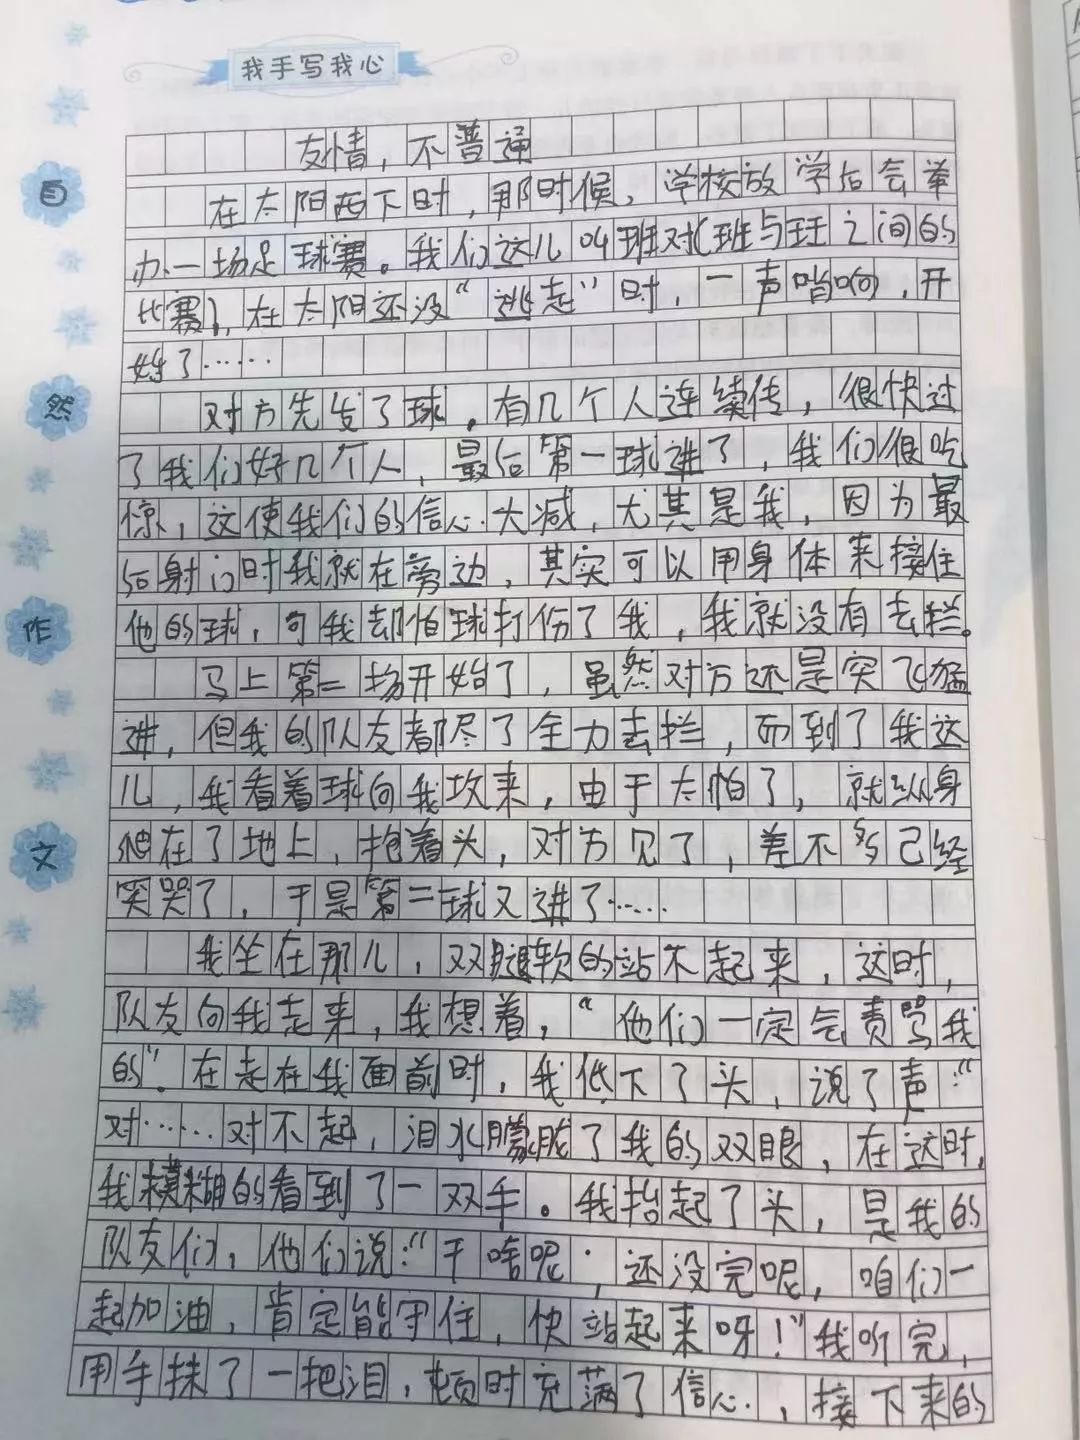 我手写我心
自然作文
友情，不普通
在太阳西下时，那时候，学校放学后会举
办一场足球赛。我们这儿04班对(班与班之间的
比赛)，在太阳还没“逃走”时，一声哨响，开
始了……
对方先发了球，有几个人连续传，很快过
了我们好几个人，最后第一球进了，我们很吃
惊，这使我们的信心大减，尤其是我，因为最
后射门时我就在旁边，其实可以用身体来接住
他的球，可我却怕球打伤了我，我就没有去拦。
马上第二场开始了，虽然对方还是突飞猛
进，但我的队友都尽了全力去拦，而到了我这
儿，我看着球向我攻来，由于太怕了，就纵身
爬在了地上，抱着头，对方见了，差不多已经
笑哭了，于是第二球又进了……
我坐在那儿，双腿软的站不起来，这时，
队友向我走来，我想着，“他们一定会责骂我
的”。在走在我面前时，我低下了头，说了声：“
对……对不起，泪水朦胧了我的双眼，在这时，
我模糊的看到了一双手。我抬起了头，是我的
队友们，他们说：“干啥呢，还没完呢，咱们一
起加油，肯定能守住，快站起来呀！”我听完，
用手抹了一把泪，顿时充满了信心，接下来的